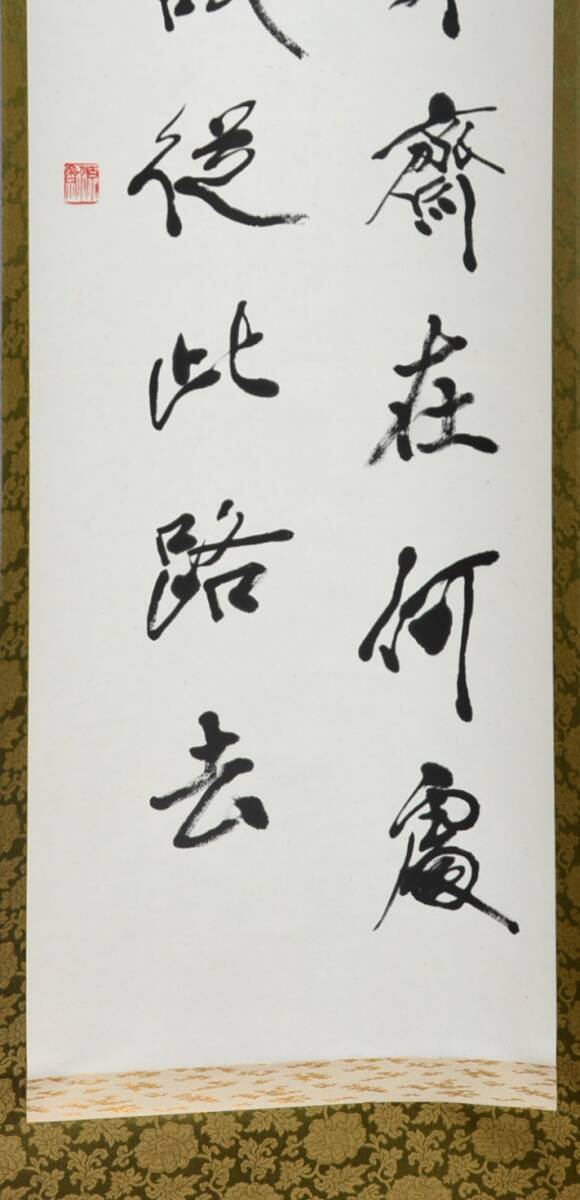 齋在何處
從此路去